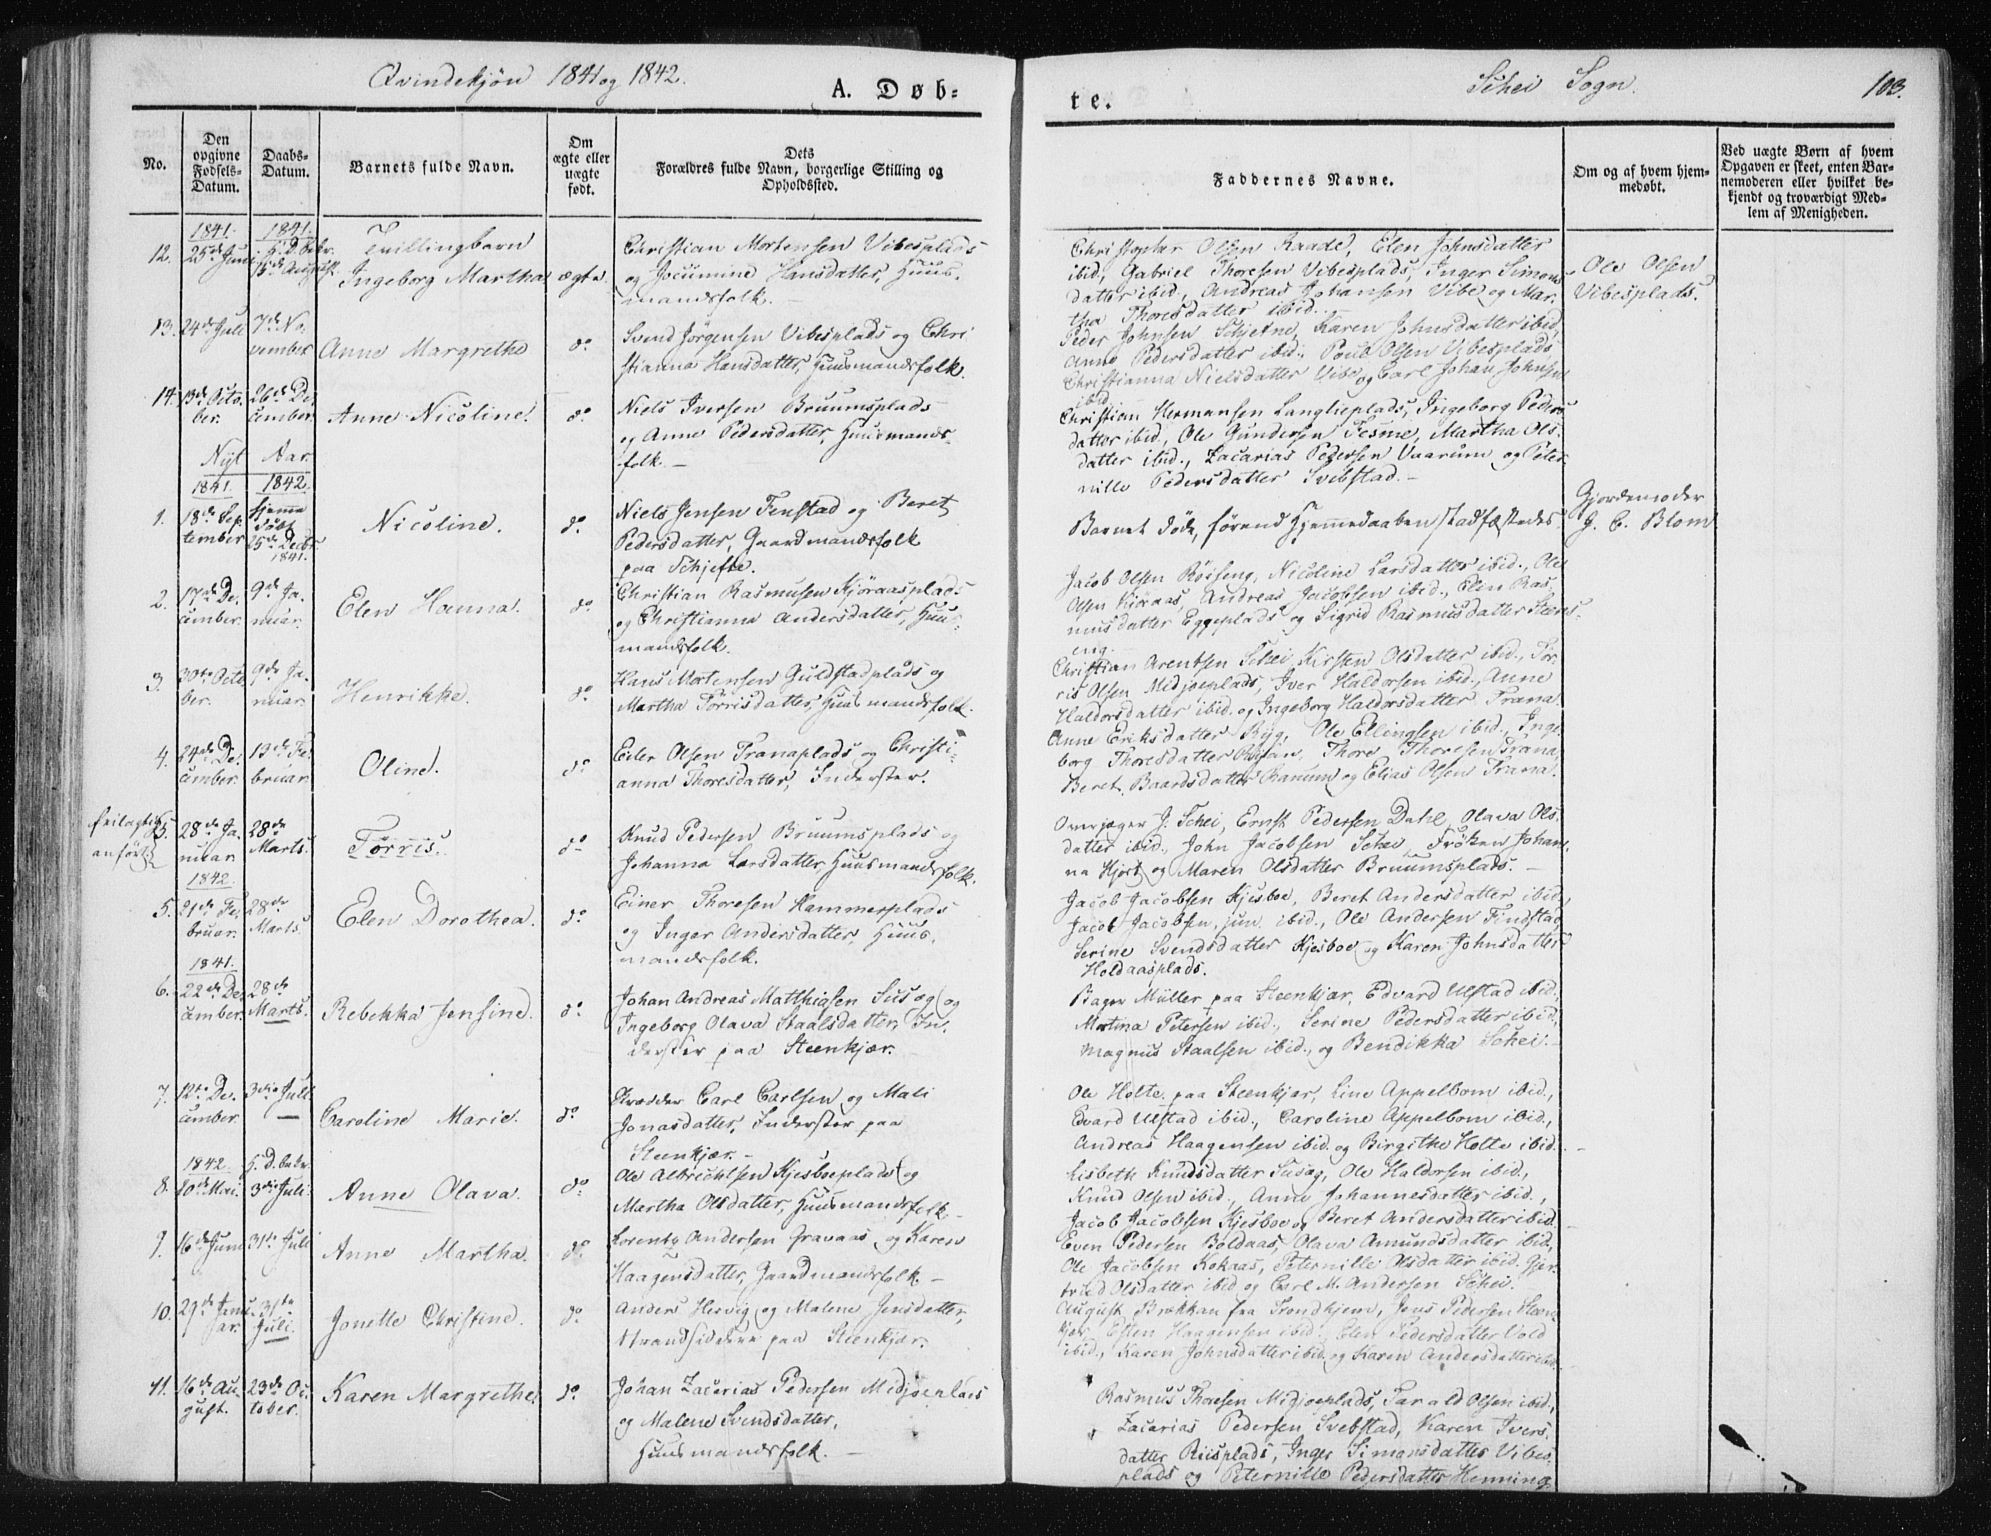 Qvindekjøn 1841 og 1842.
A. Døb-
te.
Schei Sogn.
103.
No.
Den opgivne Fødsels-Datum.
Daabs-Datum.
Barnets fulde Navn.
Om ægte eller uægte født.
Dets Forældres fulde Navn, borgerlige Stilling og Opholdssted.
Faddernes Navne.
Om og af hvem hjemmedøbt.
Ved uægte Børn af hvem Opgaven er skeet, enten Barnemoderen eller hvilket bekjendt og troværdigt Medlem af Menigheden.
1841. 1841.
12. 25de Juni H. D. bekr. 15de August.
Tvillingbarn
Ingeborg Martha
ægte.
Christian Mortensen Vibesplads
og Jocumine Hansdatter, Huus-
mandsfolk. —
Christopher Olsen Raade, Elen Johnsdatter
ibid, Gabriel Thoresen Vibesplads, Inger Simons
datter ibid., Andreas Johansen Vibe og Mar-
tha Thoresdatter ibid.
Ole Olsen
Vibesplads.
13. 24de Juli 7de No-
vember
Anne Margrethe
do
Svend Jørgensen Vibesplads og Chri
stianna Hansdatter, Huusmandsfolk.
Peder Johnsen Schjefte, Karen Johnsdatter ibid,
Anne Pedersdatter ibid., Poul Olsen Vibesplads
Christianna Nielsdatter Vibe og Carl Johan Johnsen
ibid.
14. 13de Octo-
ber.
26de De-
cember.
Anne Nicoline.
do
Niels Iversen Bruumsplads
og Anne Pedersdatter, Huusmands-
folk. —
Christian Hermansen Langlieplads, Ingeborg Peders
datter ibid., Ole Gundersen Tesme, Martha Ols-
datter ibid., Zacarias Pedersen Vaarum og Peter-
nille Pedersdatter Svebstad. —
Nyt Aar
1841. 1842.
1. 18de Sep-
tember
Hjemme
døbt
25de Decbr.
1841.
Nicoline.
do
Niels Jensen Fenstad og Beret
Pedersdatter, Gaardmandsfolk
paa Schjefte.
Barnet døde, førend Hjemmedaaben stadfæstedes.
Gjordemoder
G. E. Blom
2. 17de De-
cember.
9de Ja-
nuar.
Elen Hanna.
do
Christian Rasmusen Kjøraasplads
og Christianna Andersdatter, Huus-
mandsfolk.
Jacob Olsen Røiseng, Nicoline Larsdatter ibid., Ole
Olsen Kjøraas, Andreas Jacobsen ibid., Elen Ras-
musdatter Eggeplads og Sigrid Rasmusdatter Steens-
eng.
3. 30te Octo-
ber.
9de Ja-
nuar.
Henrikke.
do
Hans Mortensen Guldstadplads og
Martha Torrisdatter, Huusmandsfolk.
Christian Arentsen Schei, Kirsten Olsdatter ibid., Tor-
ris Olsen Midjoeplads, Iver Haldorsen ibid., Anne
Haldorsdatter ibid. og Ingeborg Haldorsdatter Trana.
4. 24de De-
cember.
13de Fe-
bruar.
Oline.
do
Eiler Olsen Tranaplads og Christi-
anna Thoresdatter, Inderster.
Anne Eriksdatter Byg, Ole Ellingsen ibid., Inge-
borg Thoresdatter Bysan, Thore Thoresen Trana,
Beret Baardsdatter Ranum og Elias Olsen Trana.
feilagtig
anført
5. 28de Ja-
nuar
1842.
28de
Marts.
Torris.
do
Knud Pedersen Bruumsplads og
Johanna Larsdatter, Huusmandsfolk.
Overjæger J. Schei, Ernst Pedersen Dahl, Olava Ols-
datter ibid., John Jacobsen Schei, Frøken Johan-
na Hjort og Maren Olsdatter Bruumsplads. —
5. 21de Fe-
bruar.
28de
Marts.
Elen Dorothea.
do
Einer Thoresen Hammerplads
og Inger Andersdatter, Huus-
mandsfolk.
Jacob Jacobsen Kjesboe, Beret Andersdatter ibid.,
Jacob Jacobsen, jun. ibid., Ole Andersen Findstad,
Serine Svendsdatter Kjesboe og Karen Johnsdatter
Holdaasplads.
1841.
6. 22de De-
cember.
28de
Marts.
Rebekka Jensine.
do
Johan Andreas Matthiasen Susæg og
Ingeborg Olava Staalsdatter, In-
derster paa Steenkjær.
Bager Müller paa Steenkjær, Edvard Ulstad ibid.,
Martina Petersen ibid., Serine Pedersdatter ibid.,
Magnus Staalsen ibid., og Bendikka Schei. —
7. 12te De-
cember.
3die Juli
—
Caroline Marie.
do
Skrædder Carl Carlsen og Mali
Jonasdatter, Inderster paa
Steenkjær. —
Ole Holte paa Steenkjær, Line Appelbom ibid.,
Edvard Ulstad ibid., Caroline Appelbom ibid.,
Andreas Haagensen ibid. og Birgithe Holte ibid.
1842. H. D. bekr.
8. 10de Mai. 3die Juli.
Anne Olava.
do
Ole Albrichtsen Kjesboeplads og
Martha Olsdatter, Huusmandsfolk —
Lisbeth Knudsdatter Susæg, Ole Haldorsen ibid.,
Knud Olsen ibid., Anne Johannesdatter ibid.,
Jacob Jacobsen Kjesboe og Beret Andersdatter ibid.
9. 16de Juni 31te Juli
Anne Martha.
do
Lorentz Andersen Gravaas og Karen
Haagensdatter, Gaardmandsfolk. —
Even Pedersen Boldaas, Olava Amundsdatter ibid.,
Ole Jacobsen Kokaas, Peternille Olsdatter ibid. Gjer-
trud Olsdatter ibid og Carl M. Andersen Schei.
10. 29de Janu-
ar.
31te
Juli.
Jonette Christine.
do
Anders Hervig og Malene Jensdatter,
Strandsiddere paa Steenkjær.
August Brækkan fra Trondhjem, Jens Pedersen Steen-
kjær, Esten Haagensen ibid., Elen Pedersdatter Vold
ibid., Karen Johnsdatter ibid. og Karen Andersdatter ibid.
11. 16de Au-
gust.
23de Oc-
tober.
Karen Margrethe.
do
Johan Zacarias Pedersen Midjoeplads
og Malene Svendsdatter,
Huusmandsfolk. —
Rasmus Thoresen Midjoeplads, Harald Olsen ibid.,
Zacarias Pedersen Svebstad, Karen Ivers-
datter Riisplads, Inger Simonsdatter Vibes-
plads og Peternille Pedersdatter Henning